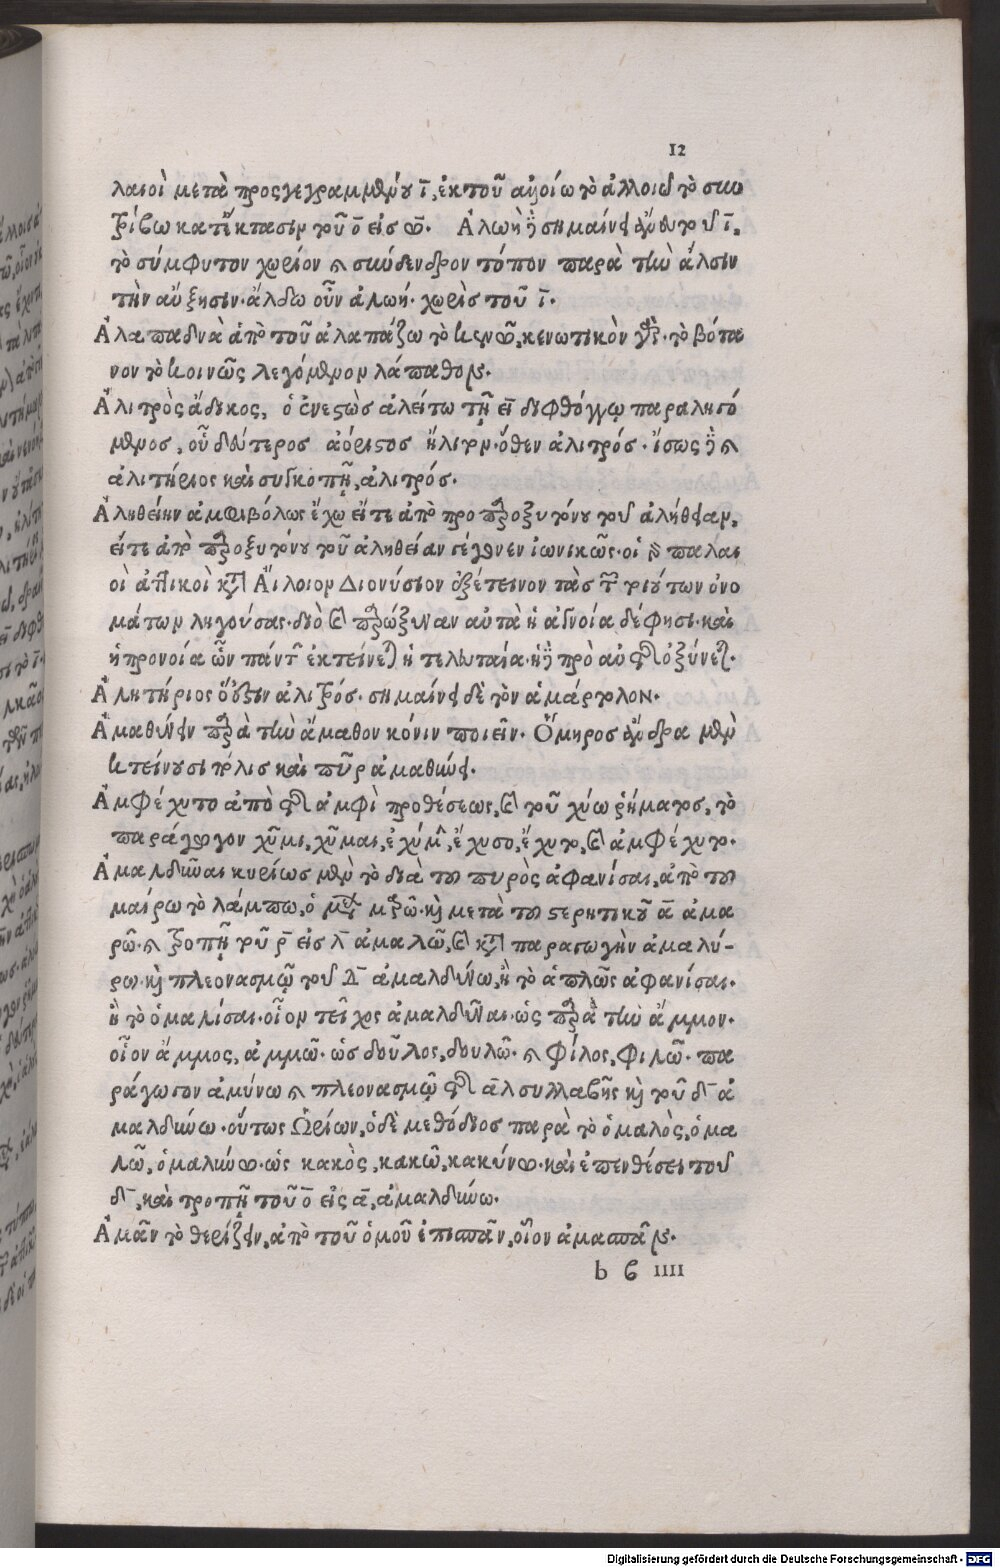 12
λαιοὶ μετὰ προσγεγραμμένου ῑ, ἐκ τοῦ αἰοίω τὸ ἀλλοιῶ τὸ συν
τρίβω κατ' ἔκτασιν τοῦ ο̄ εἰς ω̄. Ἀλωὴ δὲ σημαίνει ἄνευ τοῦ ῑ,
τὸ σύμφυτον χωρίον καὶ σύνδενδρον τόπον παρὰ τὴν ἄλσιν
τὴν αὔξησιν· ἄλδω οὖν ἀλωή· χωρὶς τοῦ ῑ.
Ἀλαπαδνὰ ἀπὸ τοῦ ἀλαπάζω τὸ κενῶ, κενωτικὸν γάρ· τὸ βότα
νον τὸ κοινῶς λεγόμενον λάπαθον.
Ἀλιτρὸς ἄδικος, ὁ ἐνεστὼς ἀλείτω τῇ ει διφθόγγῳ παραλησό
μενος, οὗ δεύτερος ἀόριστος ἤλιτον· ὅθεν ἀλιτρός· ἴσως δὲ καὶ
ἀλιτήριος καὶ συγκοπῇ, ἀλιτρός.
Ἀληθείην ἀμφιβόλως ἔχω εἴτε ἀπὸ προπαροξυτόνου τοῦ ἀλήθειαν,
εἴτε ἀπὸ παροξυτόνου τοῦ ἀληθείαν γέγονεν ἰωνικῶς· οἱ γὰρ παλαι
οὶ ἀττικοὶ κατὰ Αἴλιον Διονύσιον ἐξέτεινον τὰς τῶν τοιούτων ὀνο
μάτων ληγούσας· διὸ καὶ παρώξυναν αὐτὰ ἡ ἀγνοία δέ φησι· καὶ
ἡ προνοία ὧν πάντων ἐκτείνεται ἡ τελευταία· ἡ δὲ πρὸ αὐτῆς ὀξύνεται.
Ἀλητήριος ὅν φασιν ἀλιτρός· σημαίνει δὲ τὸν ἁμάρτωλον.
Ἀμαθύνειν παρὰ τὴν ἄμαθον κόνιν ποιεῖν. Ὅμηρος ἄνδρα μὲν
κτείνουσι πόλις καὶ πῦρ ἀμαθύνει.
Ἀμφέχυτο ἀπὸ τῆς ἀμφὶ προθέσεως, καὶ τοῦ χύω ῥήματος, τὸ
παράγωγον χῦμι, χῦμαι, ἐχύμην, ἔχυσο, ἔχυτο, καὶ ἀμφέχυτο.
Ἀμαλδῦναι κυρίως μὲν τὸ διὰ τοῦ πυρὸς ἀφανίσαι, ἀπὸ τοῦ
μαίρω τὸ λάμπω, ὁ μέλλων μαρῶ· καὶ μετὰ τοῦ στερητικοῦ ᾱ ἀμα
ρῶ· καὶ τροπῇ τοῦ ρ̄ εἰς λ̄ ἀμαλῶ, καὶ κατὰ παραγωγὴν ἀμαλύ-
νω· καὶ πλεονασμῷ τοῦ Δ ἀμαλδύνω, ἢ τὸ ἁπλῶς ἀφανίσαι.
ἢ τὸ ὁμαλίσαι· οἷον τεῖχος ἀμαλδῦναι· ὡς παρὰ τὴν ἄμμον·
οἷον ἄμμος, ἀμμῶ· ὡς δοῦλος, δουλῶ· καὶ φίλος, φιλῶ· πα
ράγωγον ἀμύνω καὶ πλεονασμῷ τῆς ᾱλ συλλαβῆς καὶ τοῦ δ̄ ἀ
μαλδύνω· οὕτως Ὠρίων, ὁ δὲ μεθόδιος παρὰ τὸ ὁμαλὸς, ὁμα
λῶ, ὁμαλύνω· ὡς κακὸς, κακῶ, κακύνω· καὶ ἐπενθέσει τοῦ
δ̄, καὶ τροπῇ τοῦ ο̄ εἰς ᾱ, ἀμαλδύνω.
Ἀμᾶν τὸ θερίζειν, ἀπὸ τοῦ ὁμοῦ ἐπισπᾶν, οἷον ἁμασπᾶν.
b β IIII
Digitalisierung gefördert durch die Deutsche Forschungsgemeinschaft - DFG